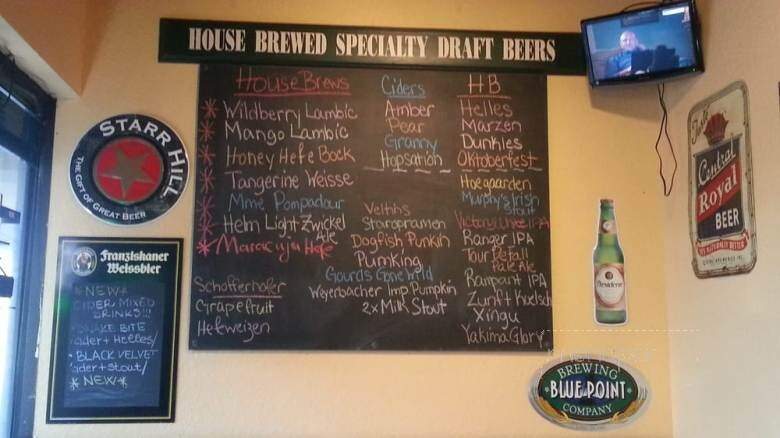 HOUSE BREWED SPECIALTY DRAFT BEERS
House Brews
* Wildberry Lambic
* Mango Lambic
* Honey Hefe Bock
* Tangerine Weisse
* Mme Pompadour
* Helm Light Zwickel
Ale
* Maracuja Hefe
Schofferhofer
Grapefruit
Hefweizen
Ciders
Amber
Pear
Granny
Hopsation
Veltins
Staropramen
Dogfish Punkin
Pumking
Gourds Gone Wild
Weyerbacher Imp Pumpkin
2x Milk Stout
HB
Helles
Marzen
Dunkles
Oktoberfest
Hoegaarden
Murphy's Irish
Stout
Ranger IPA
Tour De Fall
Pale Ale
Rampant IPA
Zunft Koelsch
Xingu
Yakima Glory
STARR HILL
THE GIFT OF GREAT BEER
Franziskaner
Weissbier
*NEW*
CIDER MIXED
DRINKS!!!
• SNAKE BITE
cider + Helles/
• BLACK VELVET
cider + Stout/
* NEW *
Central
Royal
BEER
Presidente
BREWING
BLUE POINT
COMPANY